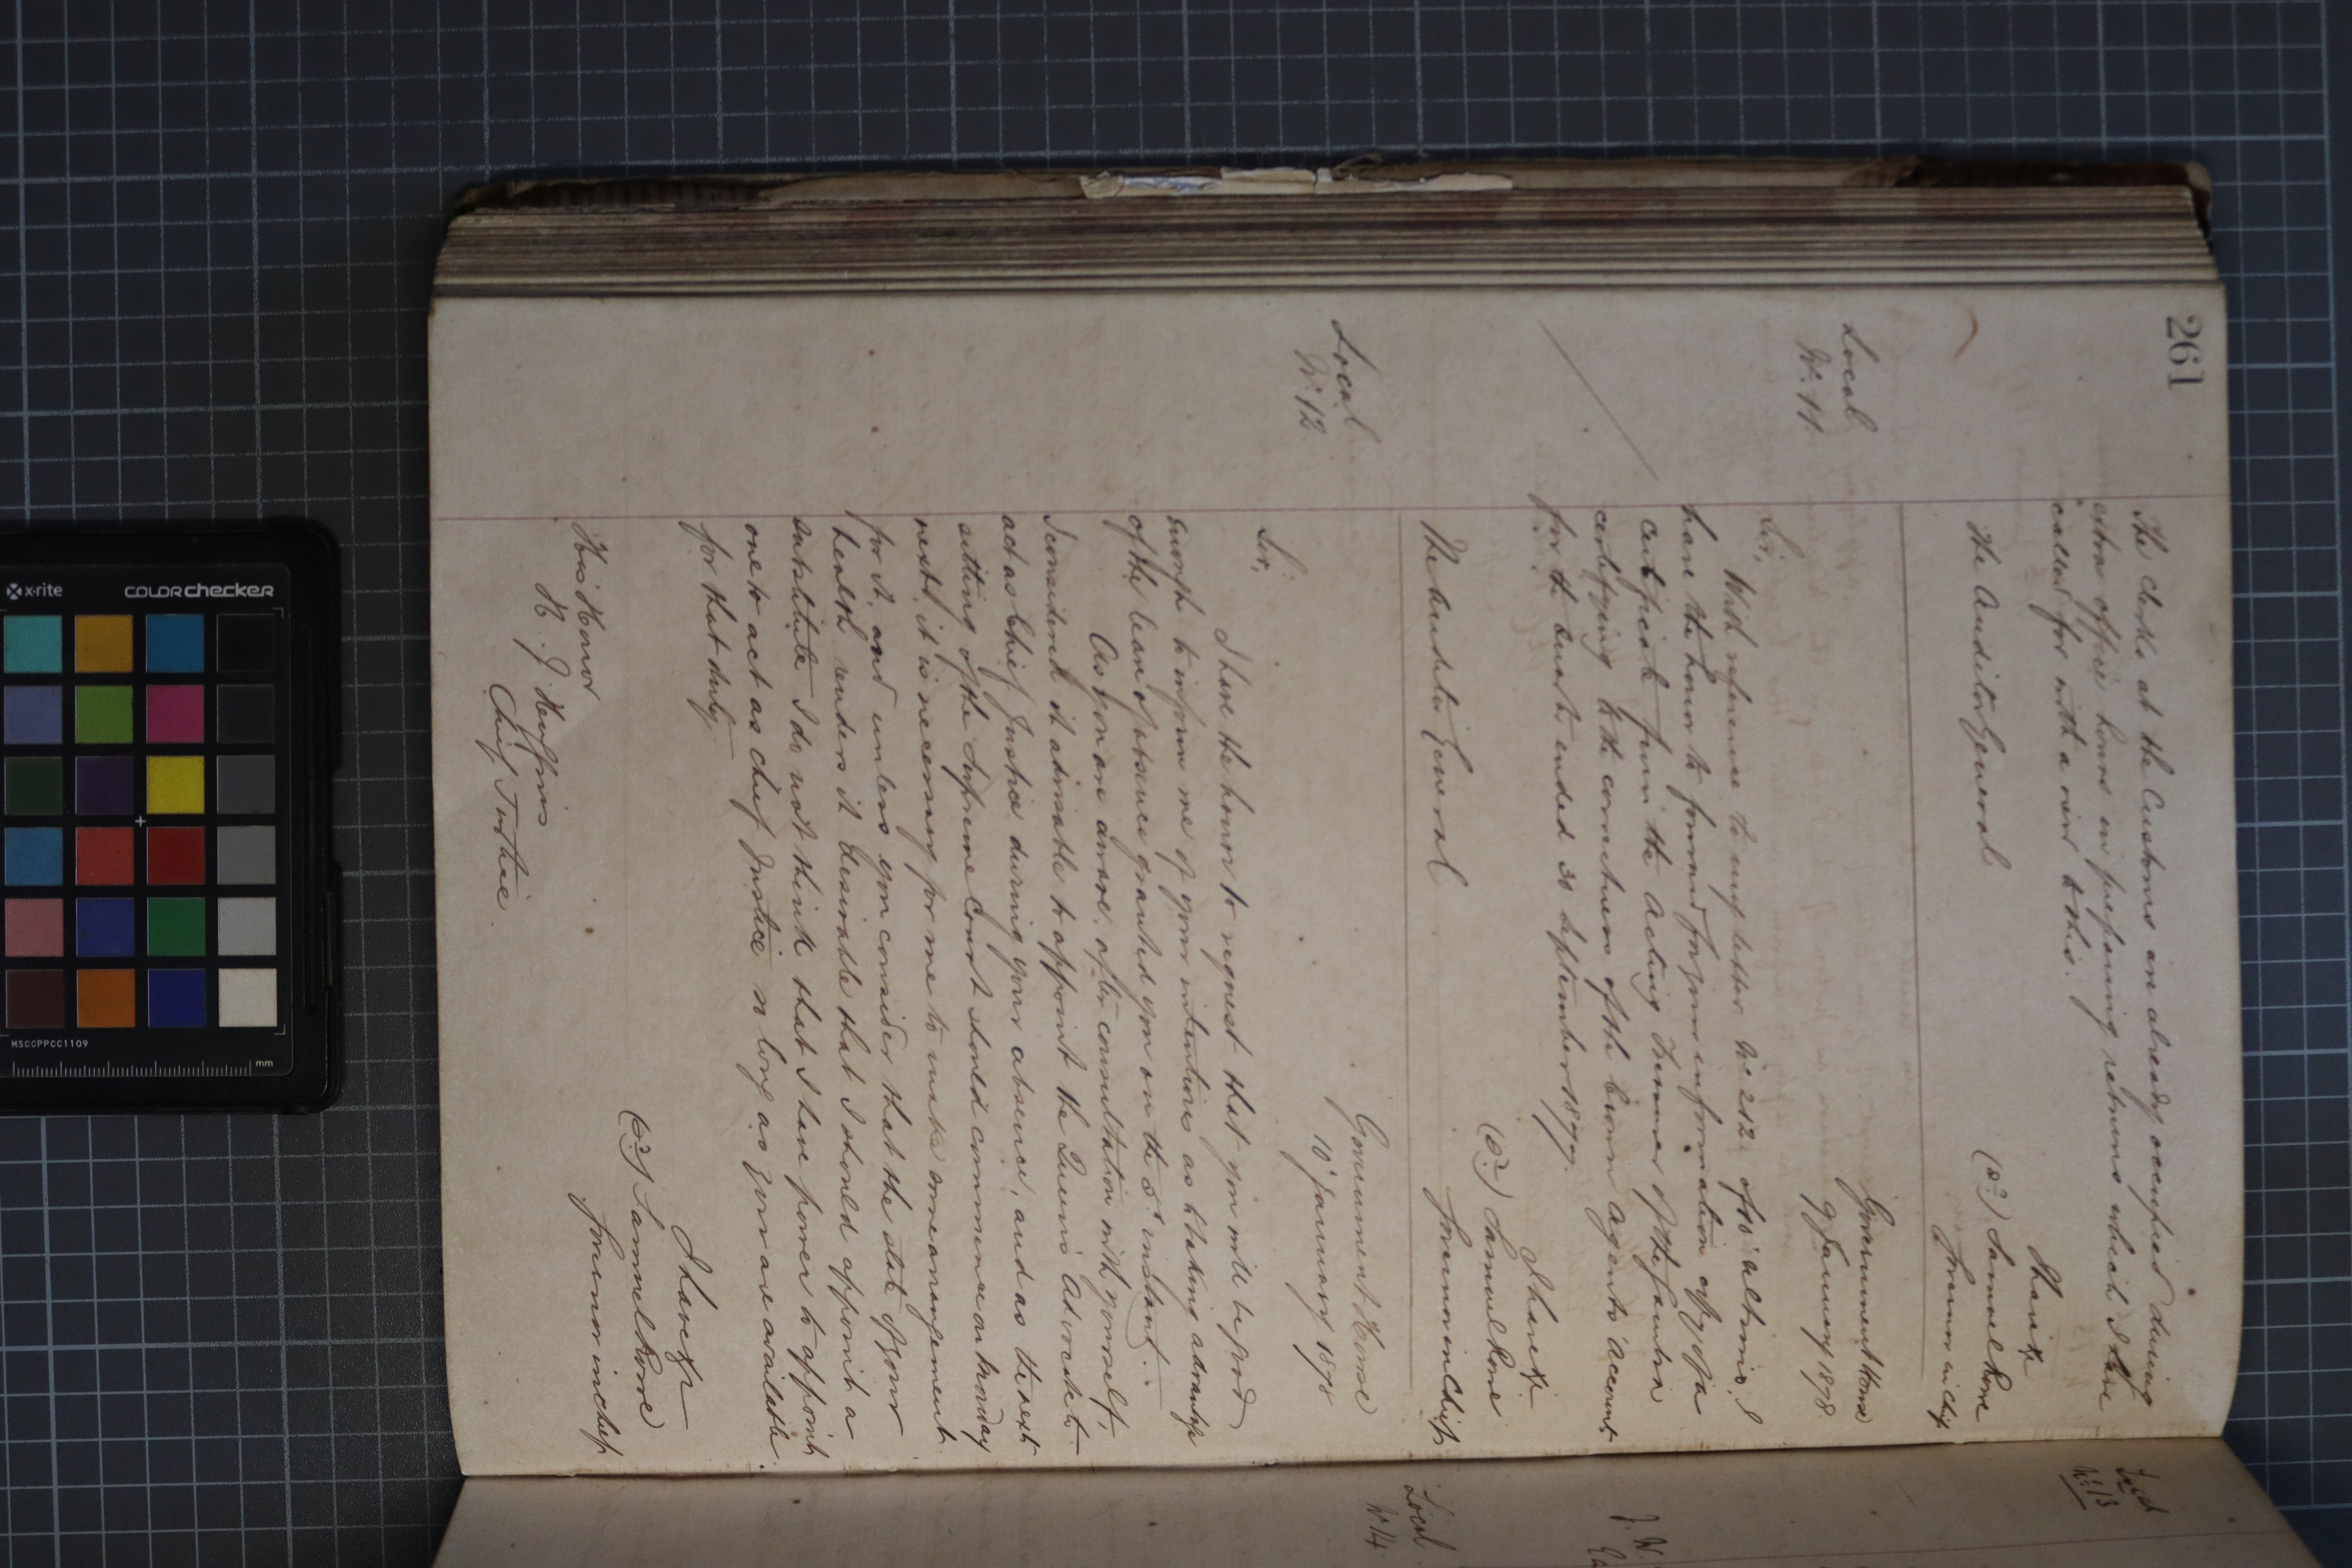 261
The clerks at the Customs are already occupied during
extra office hours in preparing returns which I have
called for with a view to this.
I have &c
(sd) Samuel Rowe
Governor in chief
The Auditor General
Local
No. 11
Government House
9 January 1878
Sir,
With reference to my letter No 212 of 10 ultimo, I
have the honor to forward for your information copy of a
certificate from the Acting Treasurer of the Gambia
certifying to the correctness of the Crown Agents account
for the quarter ended 30 September 1877.
I have &c
(sd) Samuel Rowe
Governor in Chief
The Auditor General
Local
No. 12
Government House
10 January 1878
Sir,
I have the honor to request that you will be good
enough to inform me of your intentions as to taking advantage
of the leave of absence granted you on the 5th instant.
As you are aware, after consultation with yourself,
I considered it advisable to appoint the Queen's Advocate to
act as Chief Justice during your absence, and as the next
sitting of the Supreme Court should commence on Monday
next, it is necessary for me to make some arrangement
for it, and unless you consider that the state of your
health renders it desirable that I should appoint a
substitute I do not think that I have power to appoint
one to act as Chief Justice so long as you are available
for that duty.
I have &c
(sd) Samuel Rowe
Governor in chief
His Honor
H. J. Huggins
Chief Justice.
Local
No. 13
J. W.
Local
No. 14